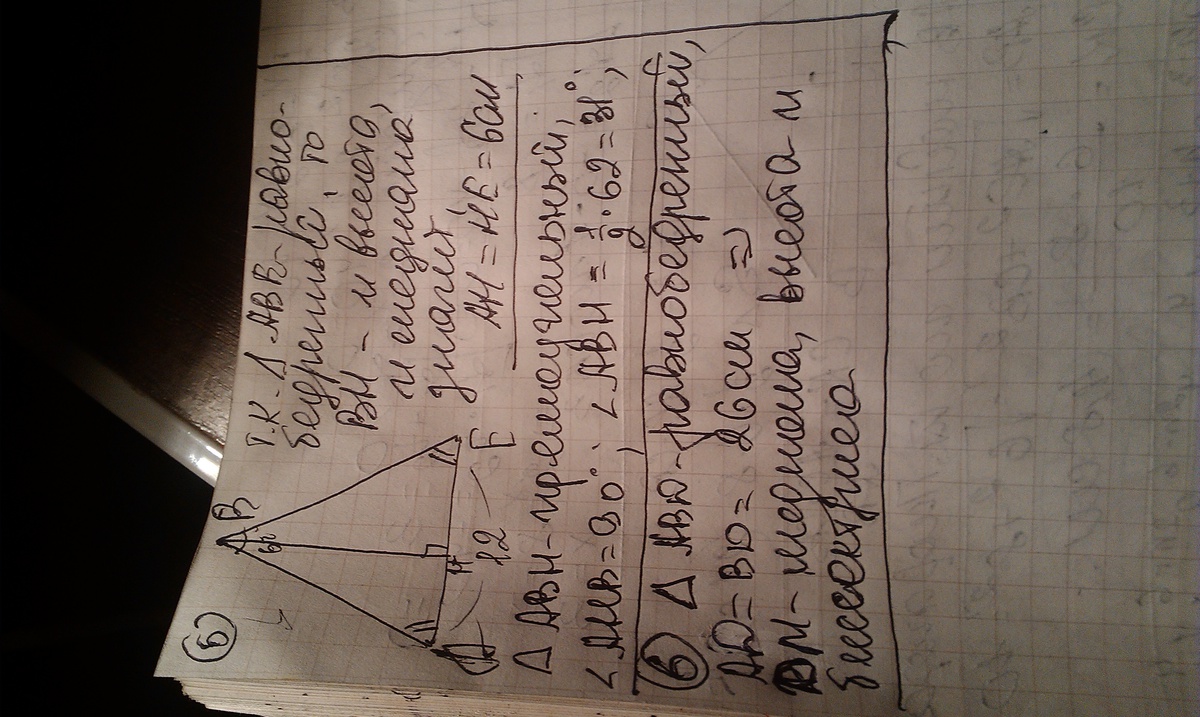 Б
B
62°
A
H
E
12
т.к. Δ ABE - равно-
бедренный, то
BH - и высота,
и медиана,
значит
AH = HE = 6см
Δ ABH - прямоугольный,
∠AHB = 90°; ∠ABH = 1/2 · 62 = 31°;
В Δ ABD - равнобедренный,
AD = BD = 26см ⇒
DM - медиана, высота и
биссектриса